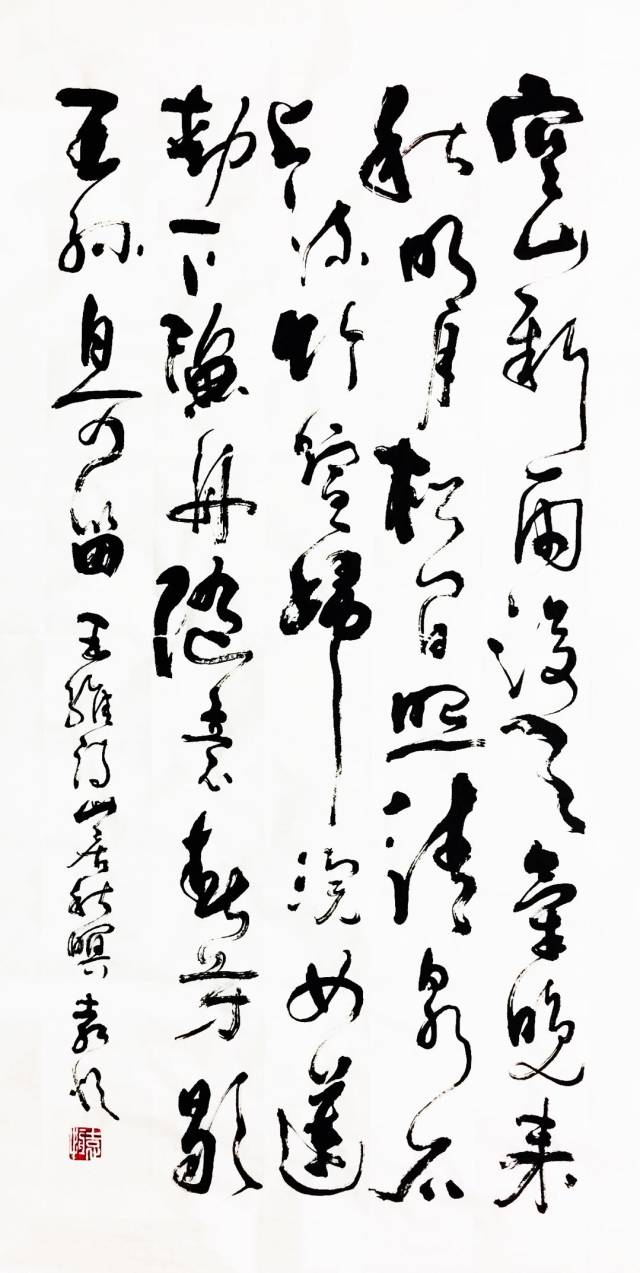 空山新雨後天氣晚來
秋明月松間照清泉石
上流竹喧歸浣女蓮
動下漁舟隨意春芳歇
王孫自可留 王維詩山居秋暝